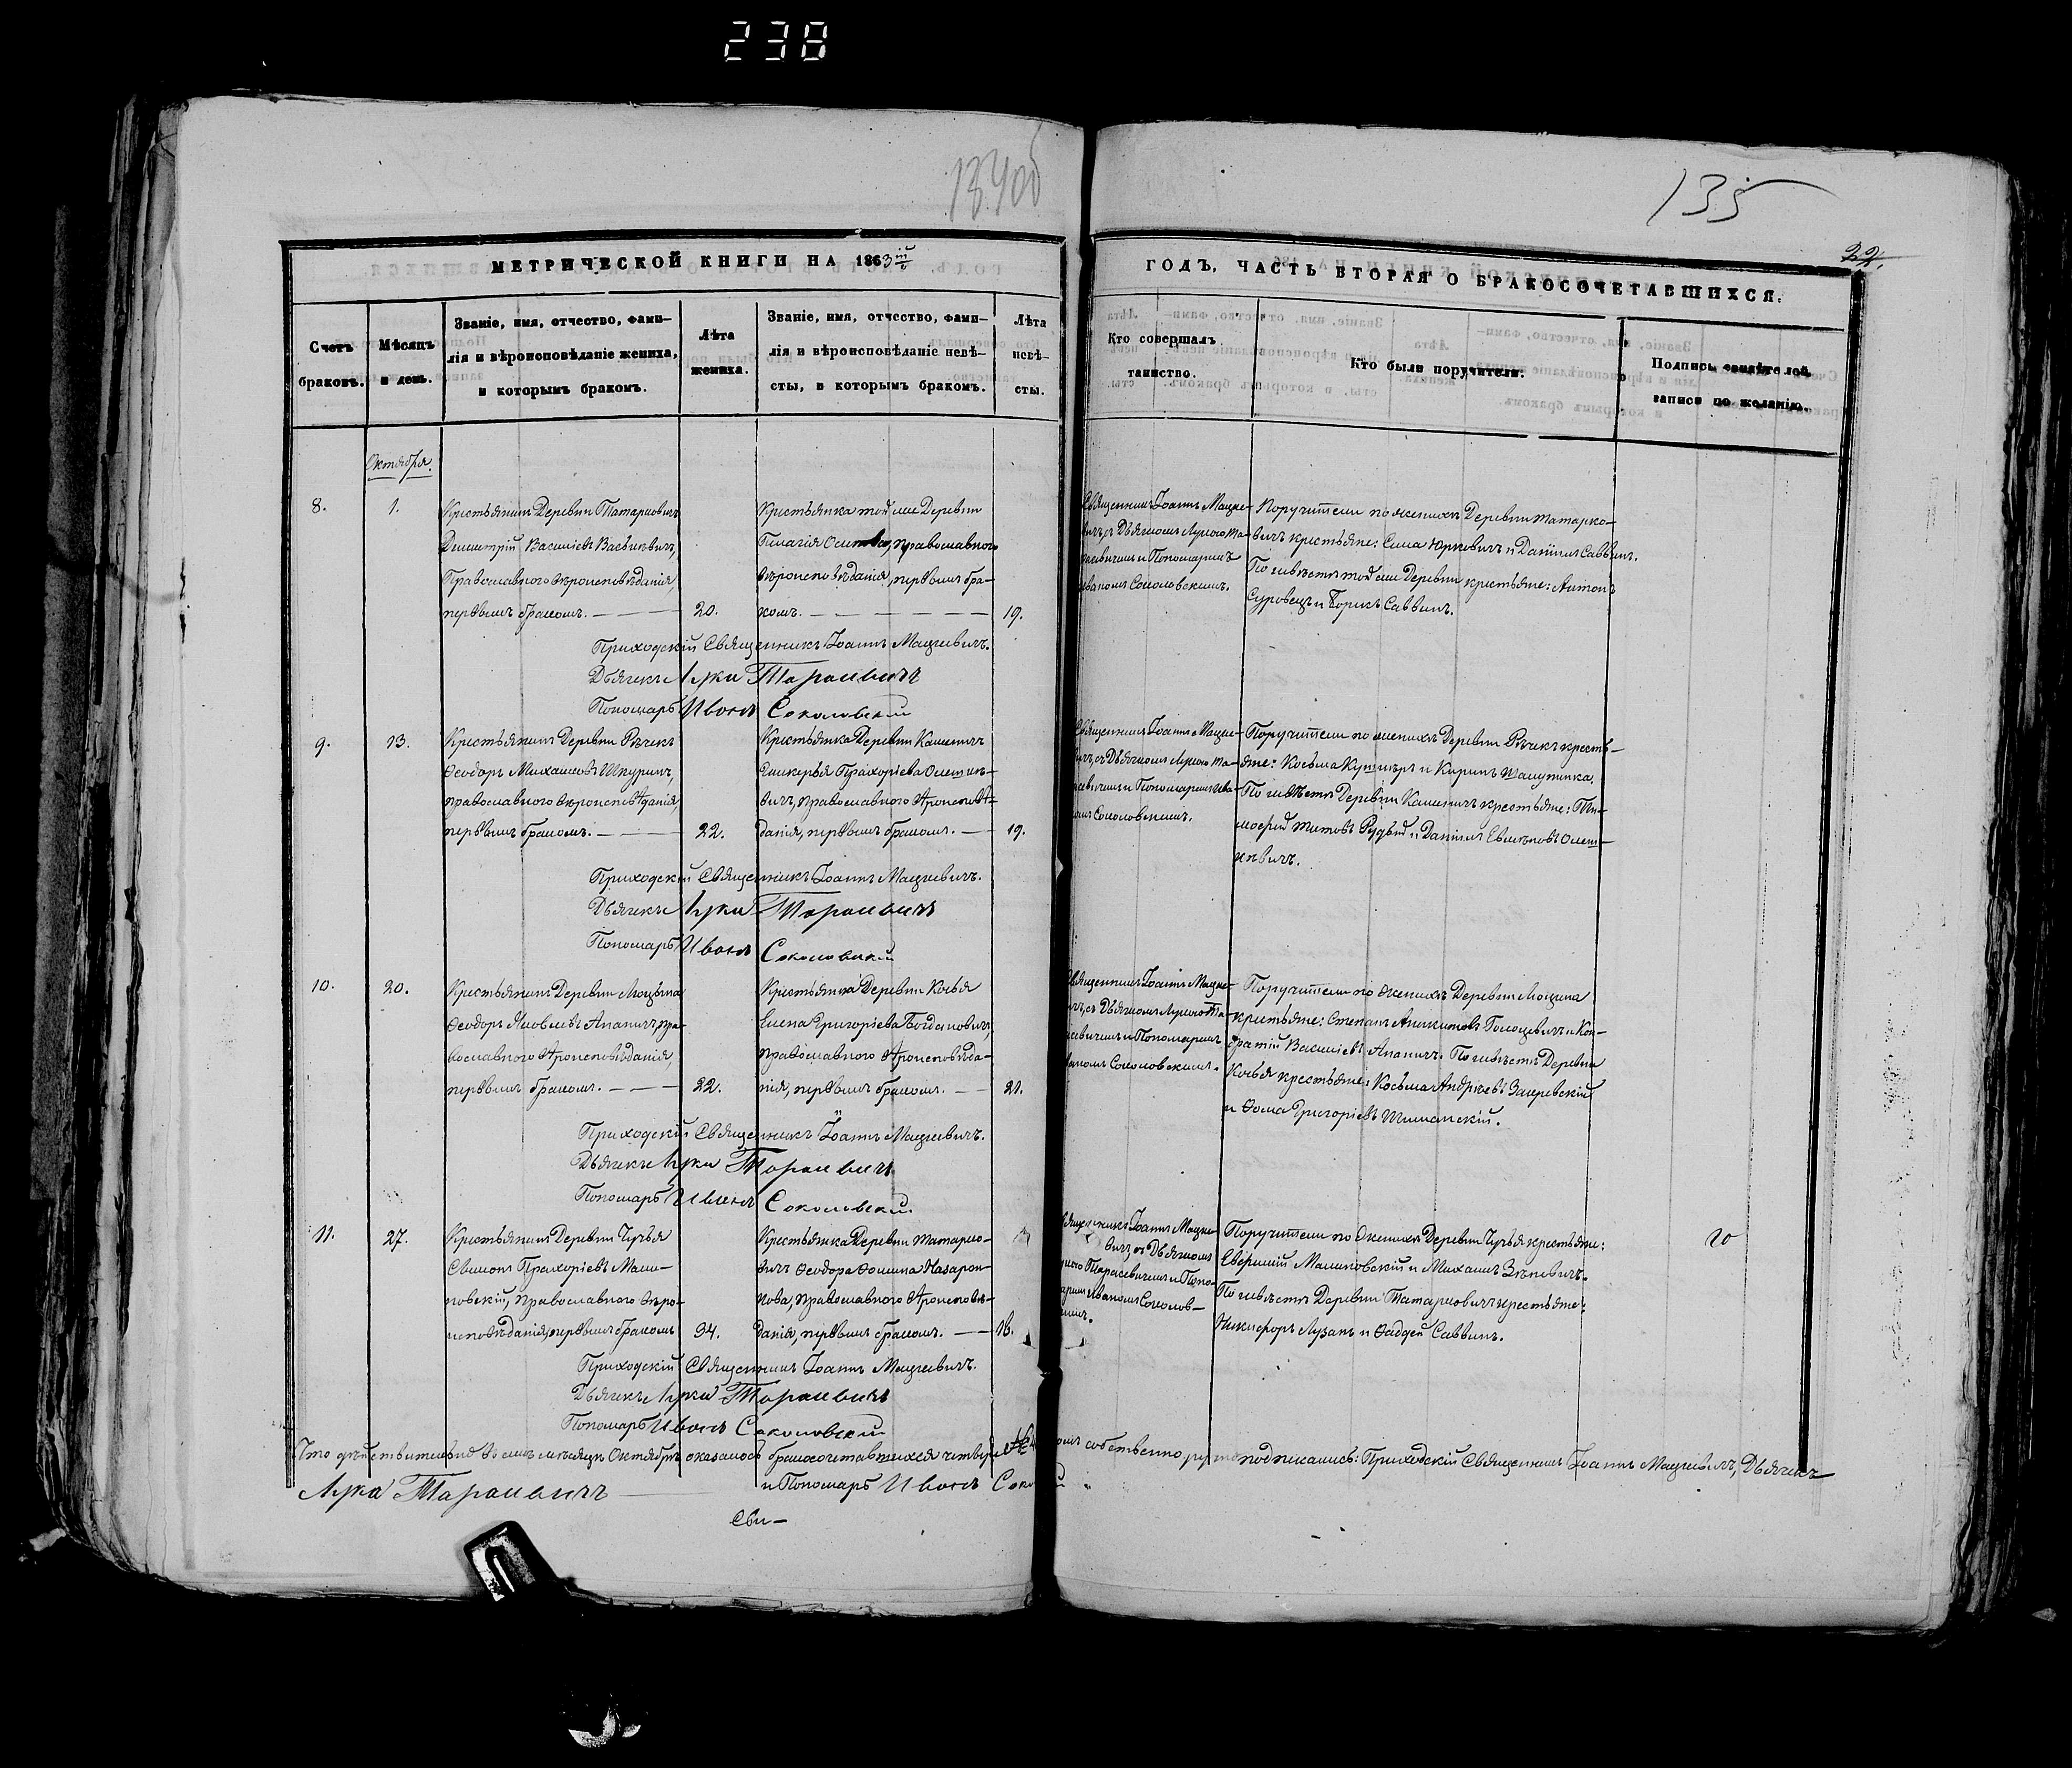 238
134об
135
22.
МЕТРИЧЕСКОЙ КНИГИ НА 1863 ій
ГОДЪ, ЧАСТЬ ВТОРАЯ О БРАКОСОЧЕТАВШИХСЯ.
Счетъ браковъ.
Мѣсяцъ и день.
Званіе, имя, отчество, фами-
лія и вѣроисповѣданіе жениха,
и которымъ бракомъ.
Лѣта жениха.
Званіе, имя, отчество, фами-
лія и вѣроисповѣданіе невѣ-
сты, и которымъ бракомъ.
Лѣта невѣ-
сты.
Кто совершалъ
таинство.
Кто были поручители.
Подпись свидѣтелей
записи по желанію.
Октября.
8.
1.
Крестьянинъ Деревни Татарковичъ
Димитрій Васильевъ
Православнаго вѣроисповѣданія,
первымъ бракомъ.
20.
Крестьянка той же Деревни
Пелагія православнаго
вѣроисповѣданія, первымъ бра-
комъ.
19.
Священникъ Іоаннъ Мацке-
вичъ, съ Дьячкомъ Лукою Та-
расевичемъ и Пономаремъ
Иваномъ Соколовскимъ.
Поручители по женихѣ Деревни Татарко-
вичъ крестьяне: Сила Юрковичъ и Даніилъ Саввинъ.
По невѣстѣ той же Деревни крестьяне: Антонъ
Суровецъ и Борисъ Саввинъ.
Приходскій Священникъ Іоаннъ Мацкевичъ.
Дьячекъ Лука Тарасевичъ
Пономарь Иванъ Соколовскій
9.
13.
Крестьянинъ Деревни Рѣчекъ
Ѳеодоръ Михаиловъ Шкуринъ,
православнаго вѣроисповѣданія,
первымъ бракомъ.
22.
Крестьянка Деревни Кашеничъ
Гликерья Прохоріева
православнаго вѣроисповѣ-
данія, первымъ бракомъ.
19.
Священникъ Іоаннъ Мацке-
вичъ, съ Дьячкомъ Лукою Та-
расевичемъ и Пономаремъ Ива-
номъ Соколовскимъ.
Поручители по женихѣ Деревни Рѣчекъ кресть-
яне: Косьма Кушнеръ и Кирилъ
По невѣстѣ Деревни Кашеничъ крестьяне: Ти-
мофей Титовъ Рудый и Даніилъ
Приходскій Священникъ Іоаннъ Мацкевичъ.
Дьячекъ Лука Тарасевичъ
Пономарь Иванъ Соколовскій
10.
20.
Крестьянинъ Деревни
Ѳеодоръ Яковлевъ Апаничъ, пра-
вославнаго вѣроисповѣданія,
первымъ бракомъ.
22.
Крестьянка Деревни Косья
Елена Григоріева Богдановичъ,
православнаго вѣроисповѣда-
нія, первымъ бракомъ.
21.
Священникъ Іоаннъ Мацке-
вичъ, съ Дьячкомъ Лукою Та-
расевичемъ и Пономаремъ
Иваномъ Соколовскимъ.
Поручители по женихѣ Деревни
крестьяне: Степанъ и Кон-
дратій Васильевъ Апаничъ. По невѣстѣ Деревни
Косья крестьяне: Косьма Андреевъ
и Ѳома Григоріевъ Шиманскій.
Приходскій Священникъ Іоаннъ Мацкевичъ.
Дьячекъ Лука Тарасевичъ
Пономарь Иванъ Соколовскій
11.
27.
Крестьянинъ Деревни
Симонъ Прохоріевъ Мали-
новскій, православнаго вѣро-
исповѣданія, первымъ бракомъ
34.
Крестьянка Деревни Татарко-
вичъ Ѳеодора Ѳомина Назарон-
кова, православнаго вѣроисповѣ-
данія, первымъ бракомъ.
16.
Священникъ Іоаннъ Мацке-
вичъ съ Дьячкомъ
Лукою Тарасевичемъ и Поно-
маремъ Иваномъ Соколов-
скимъ.
Поручители по женихѣ Деревни крестьяне:
Малиновскій и Михаилъ
По невѣстѣ Деревни Татарковичъ крестьяне:
Никифоръ Лузанъ и Ѳаддей Саввинъ.
Приходскій Священникъ Іоаннъ Мацкевичъ.
Дьячекъ Лука Тарасевичъ
Пономарь Иванъ Соколовскій
Что дѣйствительно въ семъ мѣсяцѣ Октябрѣ оказалось бракосочетавшихся собственно подписались: Приходскій Священникъ Іоаннъ Мацкевичъ, Дьячекъ
Лука Тарасевичъ и Пономарь Иванъ